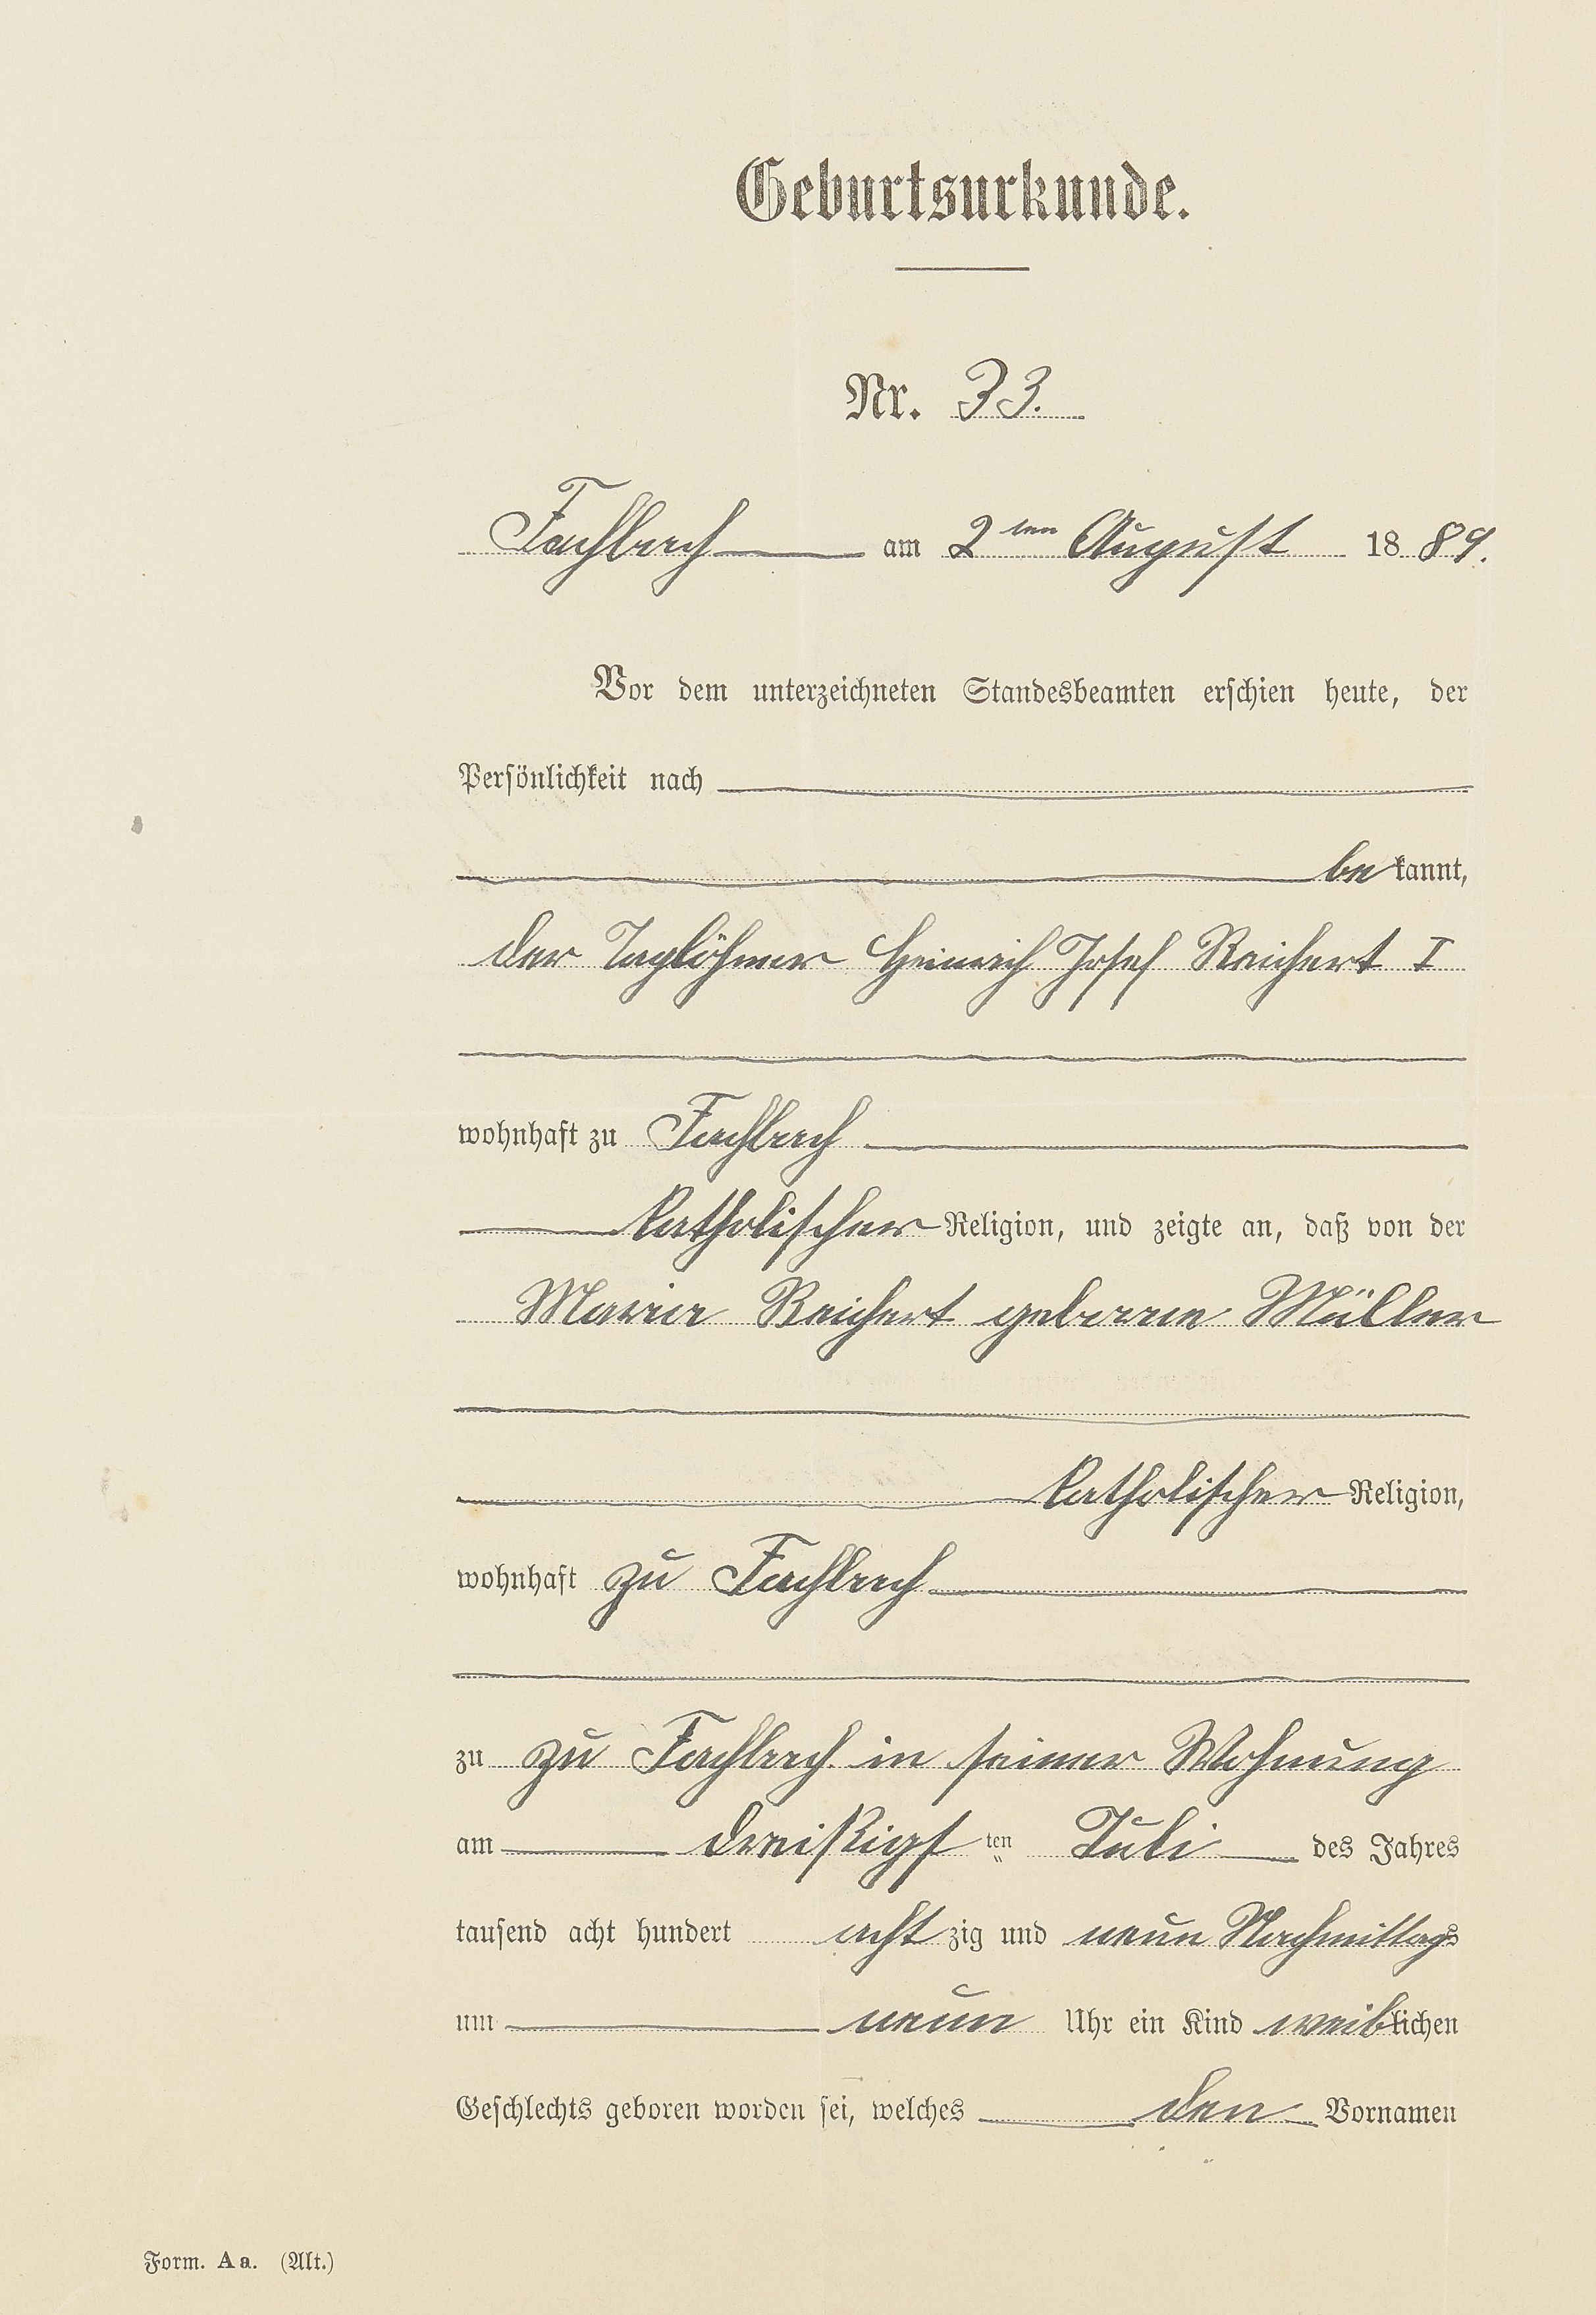 Geburtsurkunde.
Nr. 33.
Fachbach am 2ten August 1889.
Vor dem unterzeichneten Standesbeamten erschien heute, der
Persönlichkeit nach
bekannt,
der Taglöhner Heinrich Josef Reichert I
wohnhaft zu Fachbach
katholischer Religion, und zeigte an, daß von der
Maria Reichert geborne Müller
katholischer Religion,
wohnhaft zu Fachbach
zu zu Fachbach in seiner Wohnung
am dreißigsten Juli des Jahres
tausend acht hundert achtzig und neun Nachmittags
um neun Uhr ein Kind weiblichen
Geschlechts geboren worden sei, welches den Vornamen
Form. Aa. (Alt.)